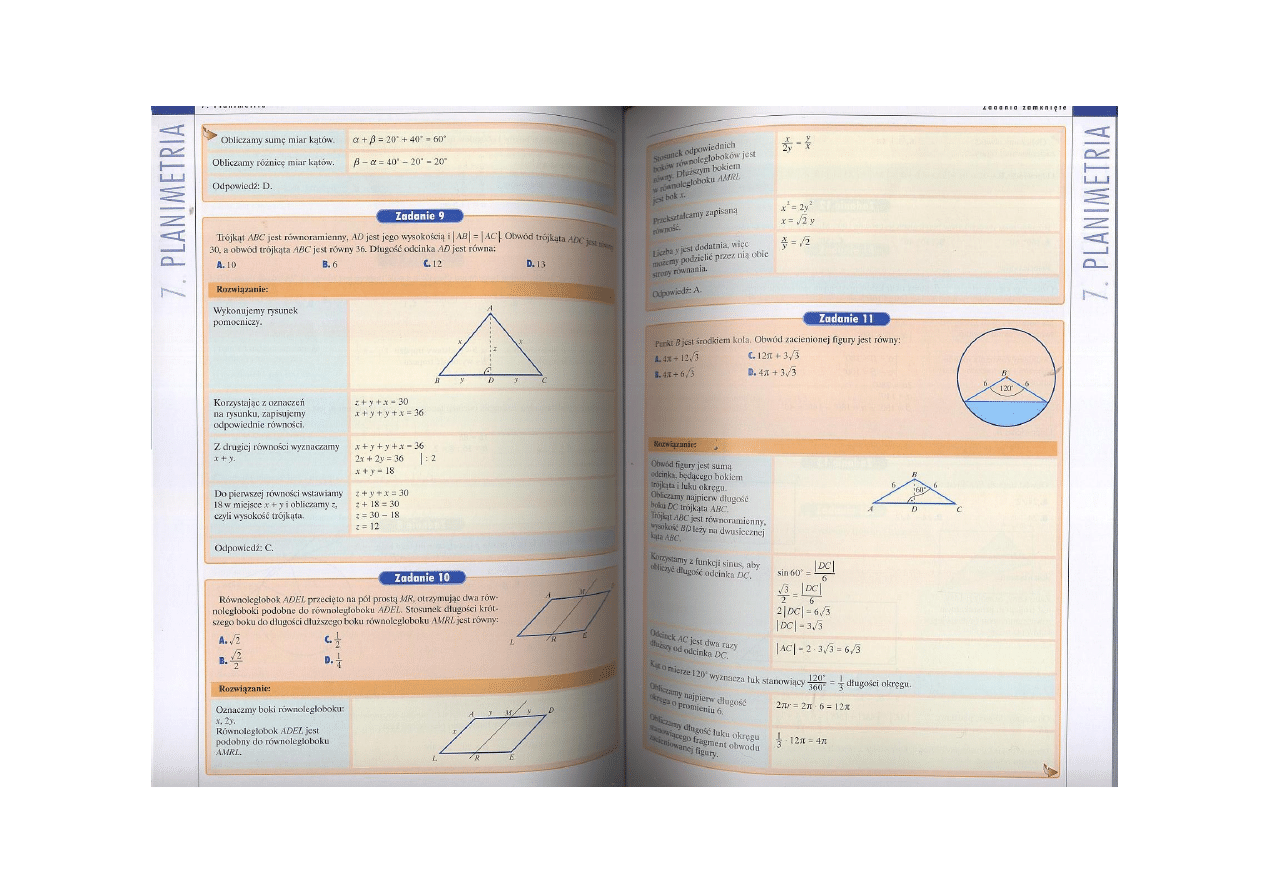 7. PLANIMETRIA
Obliczamy sumę miar kątów.
α + β = 20° + 40° = 60°
Obliczamy różnicę miar kątów.
β − α = 40° − 20° = 20°
Odpowiedź: D.
Zadanie 9
Trójkąt ABC jest równoramienny, AD jest jego wysokością i |AB| = |AC|. Obwód trójkąta ADC jest równy
30, a obwód trójkąta ABC jest równy 36. Długość odcinka AD jest równa:
A. 10 B. 6 C. 12 D. 13
Rozwiązanie:
Wykonujemy rysunek
pomocniczy.
A
x z x
B y D y C
Korzystając z oznaczeń
na rysunku, zapisujemy
odpowiednie równości.
z + y + x = 30
x + y + y + x = 36
Z drugiej równości wyznaczamy
x + y.
x + y + y + x = 36
2x + 2y = 36 | : 2
x + y = 18
Do pierwszej równości wstawiamy
18 w miejsce x + y i obliczamy z,
czyli wysokość trójkąta.
z + y + x = 30
z + 18 = 30
z = 30 − 18
z = 12
Odpowiedź: C.
Zadanie 10
Równoległobok ADEL przecięto na pół prostą MR, otrzymując dwa rów-
noległoboki podobne do równoległoboku ADEL. Stosunek długości krót-
szego boku do długości dłuższego boku równoległoboku AMRL jest równy:
A. √2 C. 1/2
B. √2/2 D. 1/4
A M
L R E
Rozwiązanie:
Oznaczmy boki równoległoboku:
x, 2y.
Równoległobok ADEL jest
podobny do równoległoboku
AMRL.
A y M y D
x
L R E
Zadania zamknięte
7. PLANIMETRIA
Stosunek odpowiednich
boków równoległoboków jest
równy. Dłuższym bokiem
w równoległoboku AMRL
jest bok x.
x/2y = y/x
Przekształcamy zapisaną
równość.
x² = 2y²
x = √2 y
Liczba y jest dodatnia, więc
możemy podzielić przez nią obie
strony równania.
x/y = √2
Odpowiedź: A.
Zadanie 11
Punkt B jest środkiem koła. Obwód zacienionej figury jest równy:
A. 4π + 12√3 C. 12π + 3√3
B. 4π + 6√3 D. 4π + 3√3
B
6 120° 6
Rozwiązanie:
Obwód figury jest sumą
odcinka, będącego bokiem
trójkąta i łuku okręgu.
Obliczamy najpierw długość
boku DC trójkąta ABC.
Trójkąt ABC jest równoramienny,
wysokość BD leży na dwusiecznej
kąta ABC.
B
6 60° 6
A D C
Korzystamy z funkcji sinus, aby
obliczyć długość odcinka DC.
sin 60° = |DC|/6
√3/2 = |DC|/6
2|DC| = 6√3
|DC| = 3√3
Odcinek AC jest dwa razy
dłuższy od odcinka DC.
|AC| = 2 · 3√3 = 6√3
Kąt o mierze 120° wyznacza łuk stanowiący 120°/360° = 1/3 długości okręgu.
Obliczamy najpierw długość
okręgu o promieniu 6.
2πr = 2π · 6 = 12π
Obliczamy długość łuku okręgu
stanowiącego fragment obwodu
zacieniowanej figury.
1/3 · 12π = 4π